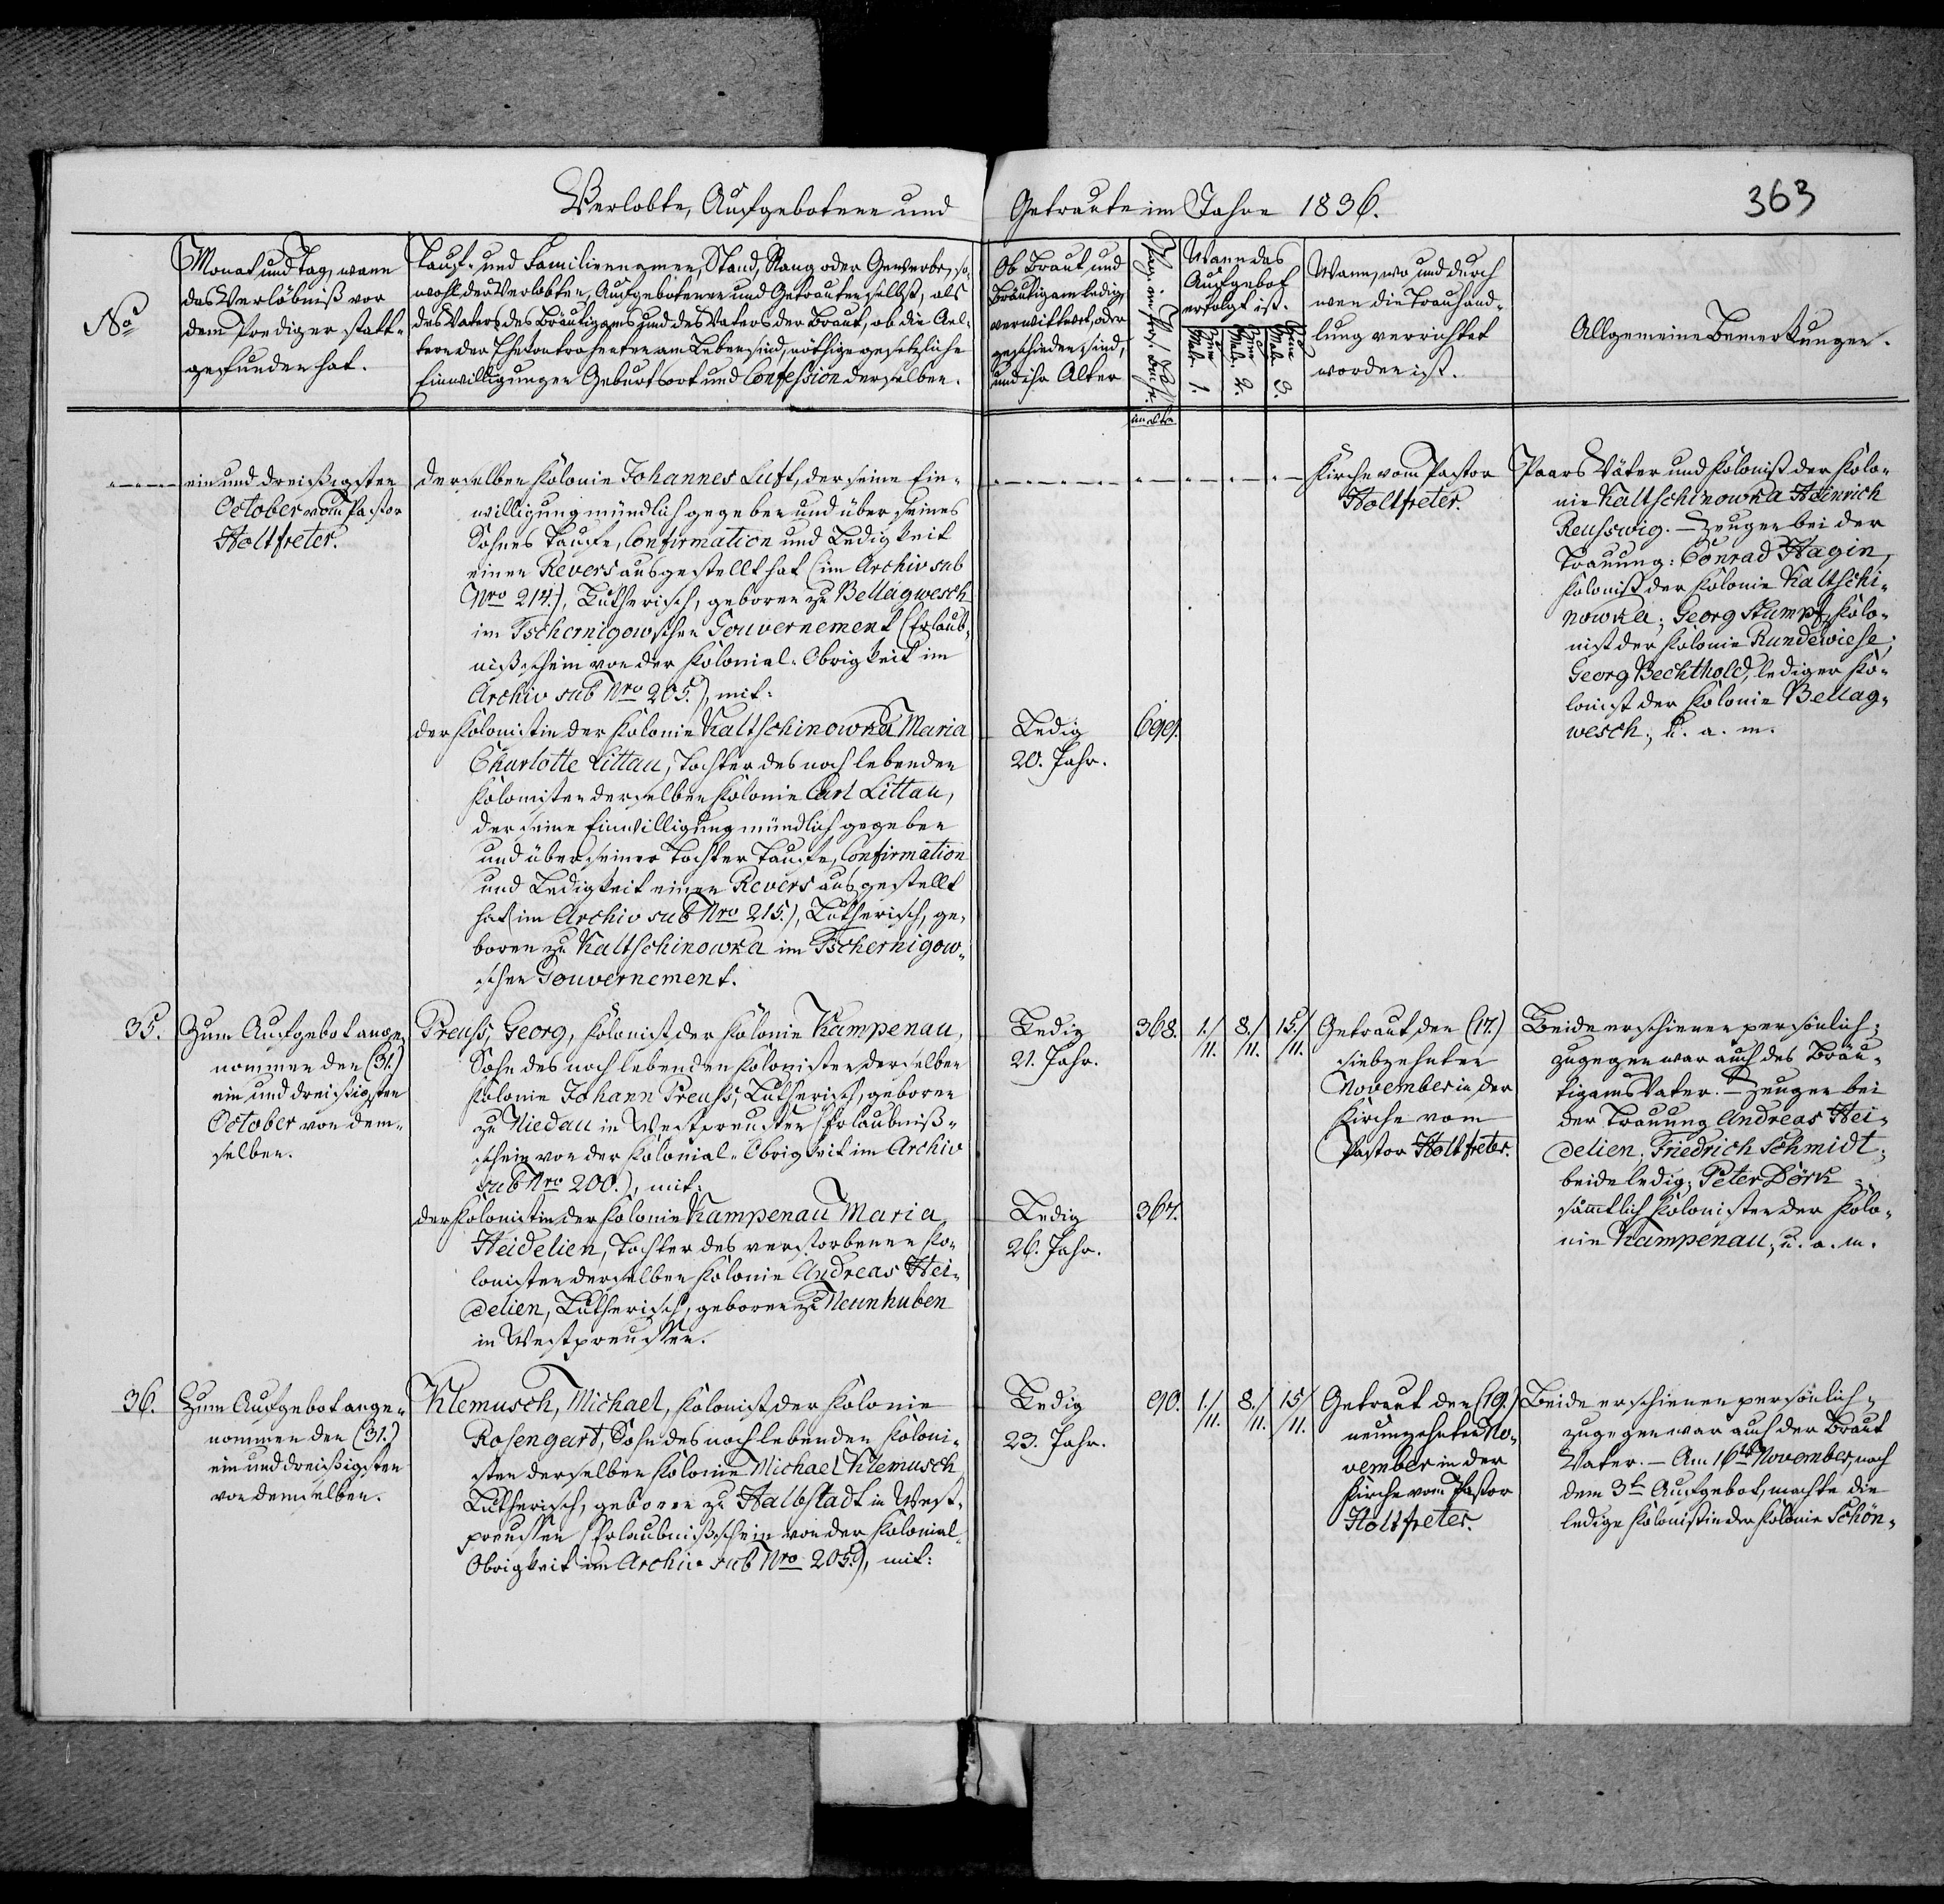 Verlobte, Aufgebotene und Getraute im Jahre 1836.
363
No
Monat und Tag, wann
das Verlöbniß vor
dem Prediger statt-
gefunden hat.
Tauf- und Familiennamen, Stand, Rang oder Gewerbe, so-
wohl der Verlobten, Aufgebotenen und Getrauten selbst, als
des Vaters des Bräutigams und des Vaters der Braut, ob die Ael-
tern der am Leben sind, nöthige gesetzliche
Einwilligungen Geburtsort und Confession derselben.
Ob Braut und
Bräutigam ledig,
verwittwet, oder
geschieden sind,
und ihr Alter
Wann das
Aufgebot
erfolgt ist.
Zum 1. Male
Zum 2. Male
Zum 3. Male
Wann, wo und durch
wen die Trauhand-
lung verrichtet
worden ist.
Allgemeine Bemerkungen.
ein und dreißigsten
October vom Pastor
Holtfreter.
derselben Kolonie Johannes Luft, der seine Ein-
willigung mündlich gegeben und über seines
Sohnes Taufe, Confirmation und Ledigkeit
einen Revers ausgestellt hat (im Archiv sub
Nro 214.), Lutherisch, geboren zu Bellagwesch
im Tschernigowschen Gouvernement (Erlaub-
nißschein von der Kolonial-Obrigkeit im
Archiv sub Nro 205.), mit:
der Kolonistin der Kolonie Kaltschinowka Maria
Charlotte Littau, Tochter des noch lebenden
Kolonisten derselben Kolonie Carl Littau,
der seine Einwilligung mündlich gegeben
und über seiner Tochter Taufe, Confirmation
und Ledigkeit einen Revers ausgestellt
hat (im Archiv sub Nro 215.), Lutherisch, ge-
boren zu Kaltschinowka im Tschernigow-
schen Gouvernement.
Ledig
20. Jahr.
Kirche vom Pastor
Holtfreter.
Paars Väter und Kolonist der Kolo-
nie Kaltschinowka Heinrich
Reusswig. – Zeugen bei der
Trauung: Conrad Hagin,
Kolonist der Kolonie Kaltschi-
nowka; Georg Stumpf, Kolo-
nist der Kolonie Rundewiese;
Georg Bechthold, lediger Ko-
lonist der Kolonie Bellag-
wesch, u. a. m.
35.
Zum Aufgebot ange-
nommen den (31.)
ein und dreißigsten
October von dem-
selben.
Preuss, Georg, Kolonist der Kolonie Kampenau,
Sohn des noch lebenden Kolonisten derselben
Kolonie Johann Preuss, Lutherisch, geboren
zu Niedau in Westpreussen (Erlaubniß-
schein von der Kolonial-Obrigkeit im Archiv
sub Nro 200.), mit:
der Kolonistin der Kolonie Kampenau Maria
Heidelien, Tochter des verstorbenen Ko-
lonisten derselben Kolonie Andreas Hei-
delien, Lutherisch, geboren zu Neunhuben
in Westpreussen.
Ledig
21. Jahr.
368.
1./11.
8./11.
15./11.
Ledig
26. Jahr.
367.
Getraut den (17.)
siebzehnten
November in der
Kirche vom
Pastor Holtfreter.
Beide erschienen persönlich;
zugegen war auch des Bräu-
tigams Vater. – Zeugen bei
der Trauung Andreas Hei-
delien, Friedrich Schmidt,
beide ledig; Peter Dörk
sämtlich Kolonisten der Kolo-
nie Kampenau, u. a. m.
36.
Zum Aufgebot ange-
nommen den (31.)
ein und dreißigsten
von demselben.
Klemusch, Michael, Kolonist der Kolonie
Rosengart, Sohn des noch lebenden Koloni-
sten derselben Kolonie Michael Klemusch
Lutherisch, geboren zu Halbstadt in West-
preussen (Erlaubnißschein von der Kolonial-
Obrigkeit im Archiv sub Nro 205.), mit:
Ledig
23. Jahr.
90.
1./11.
8./11.
15/11.
Getraut den (19.)
neunzehnten No-
vember in der
Kirche vom Pastor
Holtfreter.
Beide erschienen persönlich,
zugegen war auch der Braut
Vater. – Am 16ten November, nach
dem 3ten Aufgebot, machte die
ledige Kolonistin der Kolonie Schön-